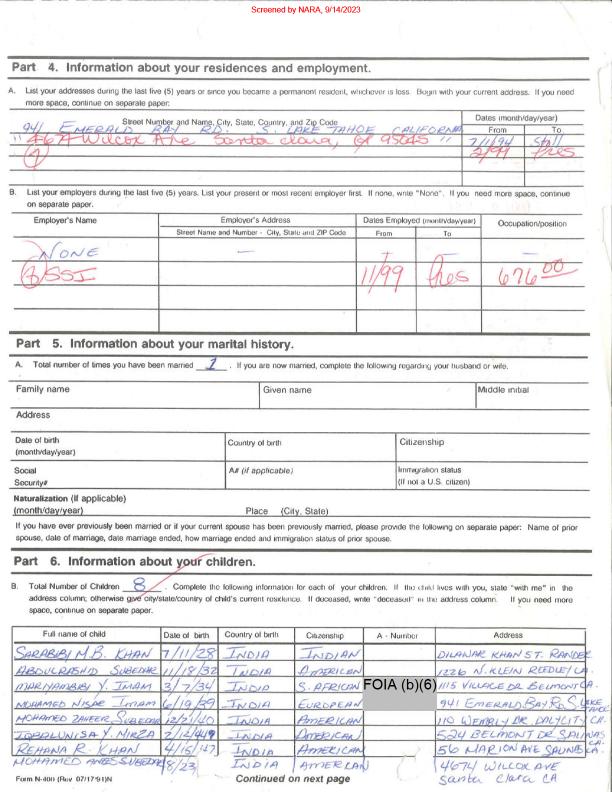 Screened by NARA, 9/14/2023
Part 4. Information about your residences and employment.
A. List your addresses during the last five (5) years or since you became a permanent resident, whichever is less. Begin with your current address. If you need
more space, continue on separate paper:
Street Number and Name, City, State, Country, and Zip Code Dates (month/day/year)
From To
941 EMERALD BAY RD. S. LAKE TAHOE CALIFORNIA 7/1/94 Still
4674 Wilcox Ave Santa Clara, 95045 2/99 Pres
B. List your employers during the last five (5) years. List your present or most recent employer first. If none, write "None". If you need more space, continue
on separate paper.
Employer's Name Employer's Address Dates Employed (month/day/year) Occupation/position
Street Name and Number - City, State and ZIP Code From To
NONE — — —
SSI 11/99 Pres 676 00
Part 5. Information about your marital history.
A. Total number of times you have been married 1 . If you are now married, complete the following regarding your husband or wife.
Family name Given name Middle initial
Address
Date of birth (month/day/year) Country of birth Citizenship
Social Security# A# (if applicable) Immigration status (If not a U.S. citizen)
Naturalization (If applicable)
(month/day/year) Place (City, State)
If you have ever previously been married or if your current spouse has been previously married, please provide the following on separate paper: Name of prior
spouse, date of marriage, date marriage ended, how marriage ended and immigration status of prior spouse.
Part 6. Information about your children.
B. Total Number of Children 8 . Complete the following information for each of your children. If the child lives with you, state "with me" in the
address column; otherwise give city/state/country of child's current residence. If deceased, write "deceased" in the address column. If you need more
space, continue on separate paper.
Full name of child Date of birth Country of birth Citizenship A - Number Address
SARABIBI M.B. KHAN 7/11/28 INDIA INDIAN DILAWAR KHAN ST. RANDER
ABDULRASHID SUBEDAR 11/18/32 INDIA AMERICAN 1226 N. KLEIN REEDLEY CA.
MARIYAMBIBI Y. IMAM 3/7/34 INDIA S. AFRICAN FOIA (b)(6) 1115 VILLAGE DR BELMONT CA.
MOHAMED NISAR IMAM 6/19/39 INDIA EUROPEAN 941 EMERALD BAY RD S LAKE TAHOE
MOHAMED ZAHEER SUBEDAR 12/21/40 INDIA AMERICAN 110 WEMBLY DR DALYCITY CA.
IQBALUNISA Y. MIRZA INDIA AMERICAN 524 BELMONT DR SALINAS CA.
REHANA R. KHAN 4/15/47 INDIA AMERICAN 56 MARION AVE SALINAS CA.
MOHAMED SUBEDAR 8/23/ INDIA AMERICAN 4674 WILCOX AVE
Santa Clara CA
Form N-400 (Rev 07/17/91)N Continued on next page